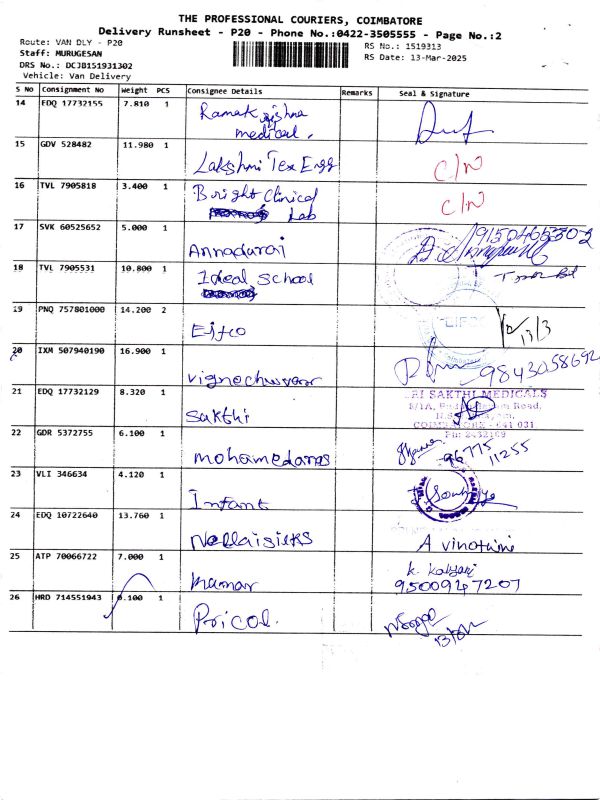 THE PROFESSIONAL COURIERS, COIMBATORE
Delivery Runsheet - P20 - Phone No.:0422-3505555 - Page No.:2
Route: VAN DLY - P20
Staff: MURUGESAN
DRS No.: DCJB151931302
Vehicle: Van Delivery
RS No.: 1519313
RS Date: 13-Mar-2025
S No Consignment No Weight PCS Consignee Details Remarks Seal & Signature
14 EDQ 17732155 7.810 1
Ramakrishna
medical.
15 GDV 528482 11.980 1
Lakshmi Tex Engg C/N
16 TVL 7905818 3.400 1
Bright Clinical
Lab C/N
17 SVK 60525652 5.000 1
Annadurai
18 TVL 7905531 10.800 1
Ideal School
19 PNQ 757801000 14.200 2
Eifco 13/3
20 IXM 507940190 16.900 1
9843058692
21 EDQ 17732129 8.320 1
Sakthi
SRI SAKTHI MEDICALS
COIMBATORE - 641 031
22 GDR 5372755 6.100 1
96775
11255
23 VLI 346634 4.120 1
Infant
24 EDQ 10722640 13.760 1
Nellaisilks A vinothini
25 ATP 70066722 7.000 1
Kumar
9500947207
26 HRD 714551943 0.100 1
Pricol.